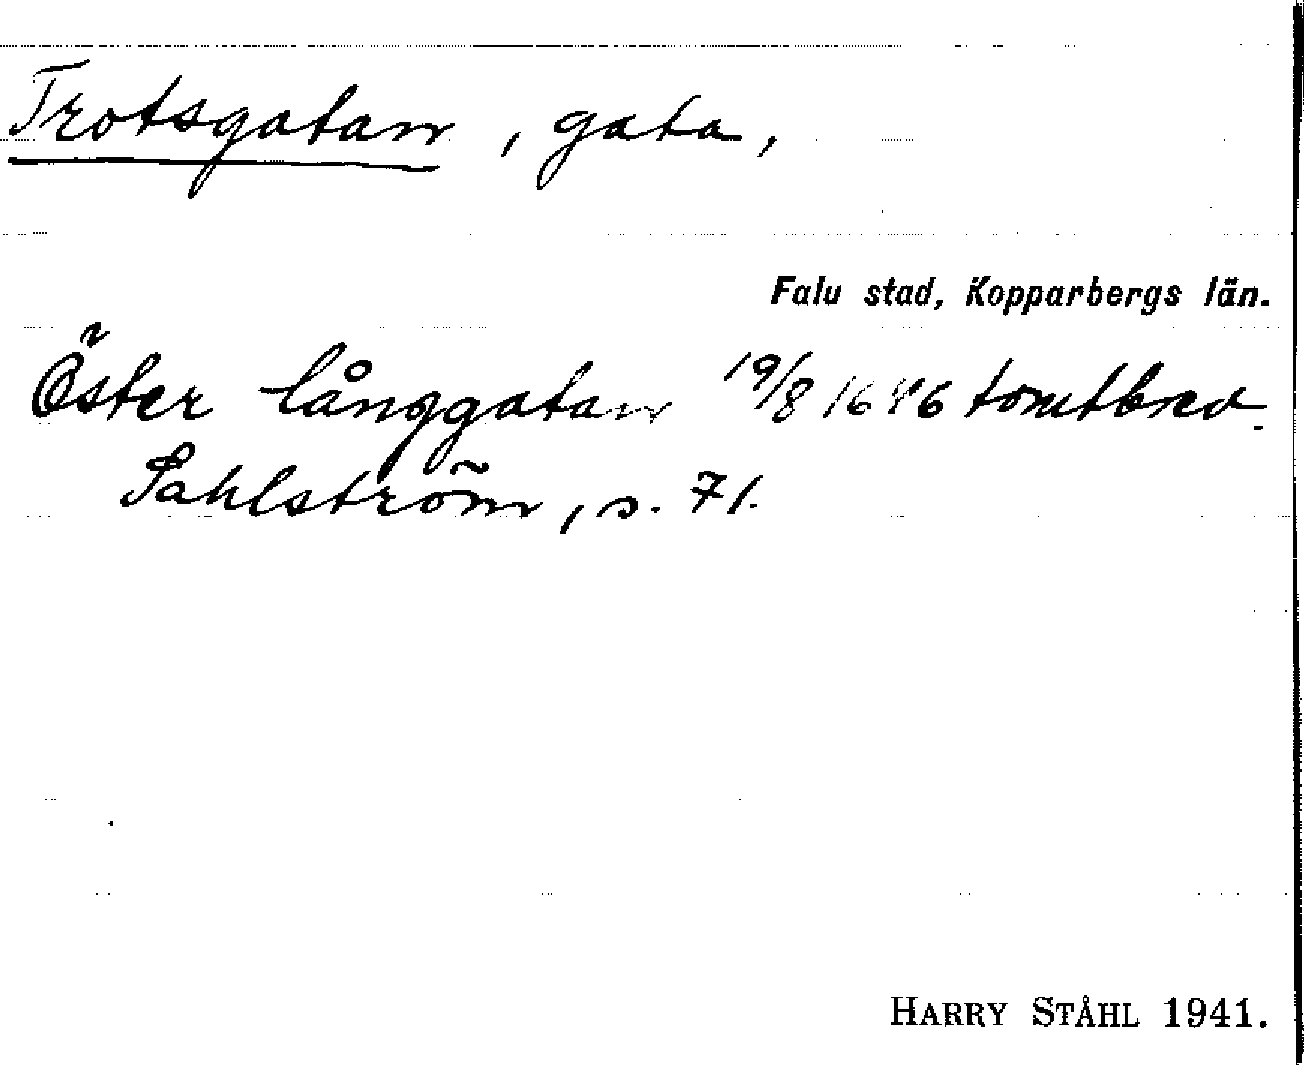 Trotsgatan, gata,
Falu stad, Kopparbergs län.
Öster långgatan 19/8 1646 tomtbrev.
Sahlström, s. 71.
HARRY STÅHL 1941.